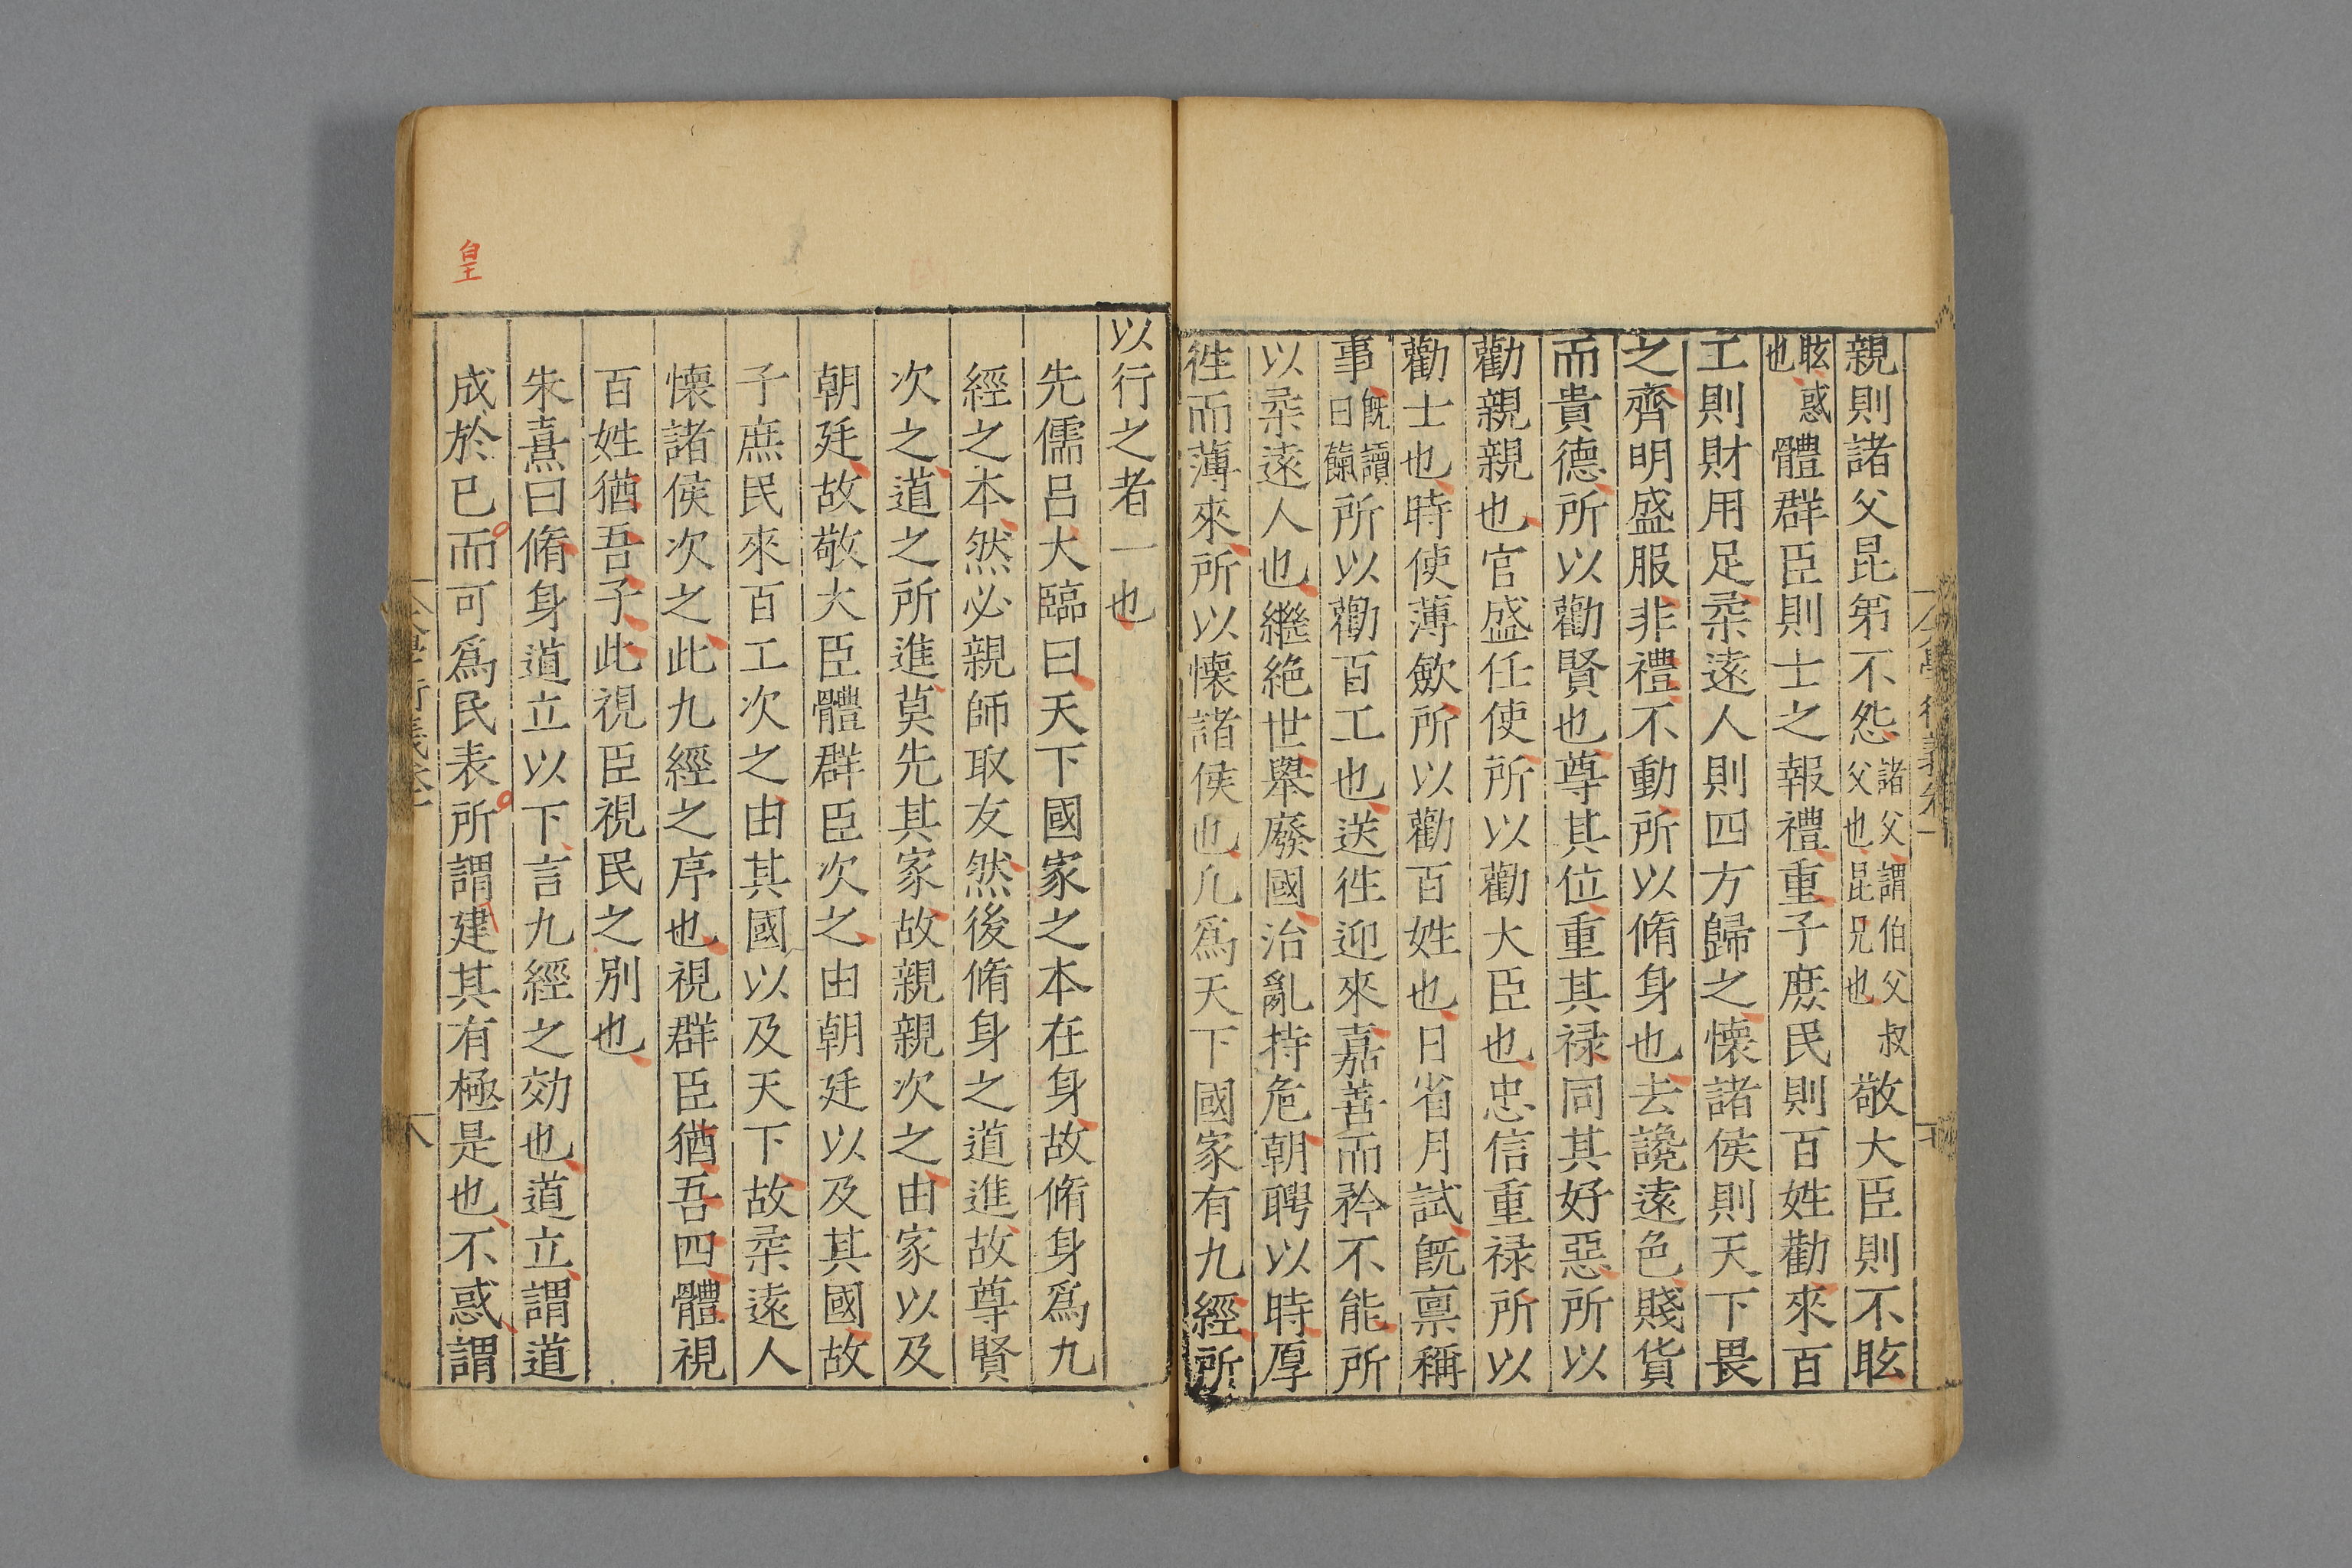 親則諸父昆弟不怨諸父謂伯父叔父也昆兄也敬大臣則不眩
眩惑也體群臣則士之報禮重子庶民則百姓勸來百
工則財用足柔遠人則四方歸之懷諸侯則天下畏
之齊明盛服非禮不動所以脩身也去讒遠色賤貨
而貴德所以勸賢也尊其位重其祿同其好惡所以
勸親親也官盛任使所以勸大臣也忠信重祿所以
勸士也時使薄斂所以勸百姓也日省月試旣稟稱
事旣讀曰餼所以勸百工也送徃迎來嘉善而矜不能所
以柔遠人也繼絶世舉廢國治亂持危朝聘以時厚
徃而薄來所以懷諸侯也凡爲天下國家有九經所
以行之者一也
先儒呂大臨曰天下國家之本在身故脩身爲九
經之本然必親師取友然後脩身之道進故尊賢
次之道之所進莫先其家故親親次之由家以及
朝廷故敬大臣體群臣次之由朝廷以及其國故
子庶民來百工次之由其國以及天下故柔遠人
懷諸侯次之此九經之序也視群臣猶吾四體視
百姓猶吾子此視臣視民之別也
朱熹曰脩身道立以下言九經之効也道立謂道
成於己而可爲民表所謂建其有極是也不惑謂
皇